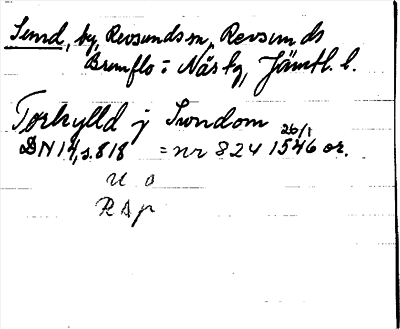 Sund, by, Revsunds sn, Revsunds
Brunflo o Näs tg, Jämtl. l.
Torkylld j Swndom
DN 14, s. 818 = nr 824 26/1 1546 or.
U o